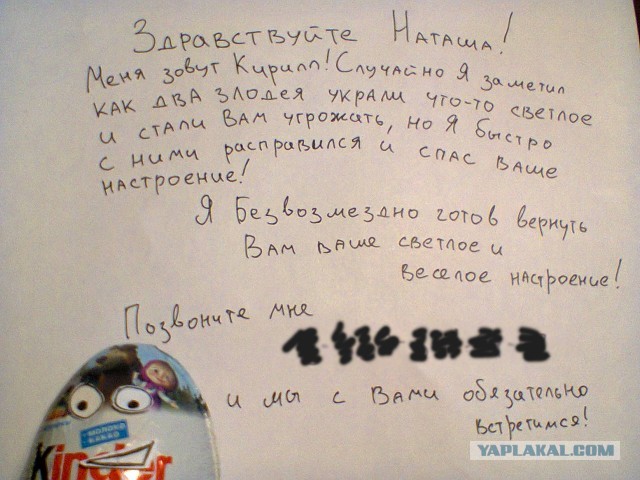 Здравствуйте Наташа!
Меня зовут Кирилл! Случайно я заметил
как два злодея украли что-то светлое
и стали Вам угрожать, но я быстро
с ними расправился и спас ваше
настроение!
Я Безвозмездно готов вернуть
Вам ваше светлое и
веселое настроение!
Позвоните мне
и мы с Вами обязательно
встретимся!
молоко
какао
Kinder
YAPLAKAL.COM